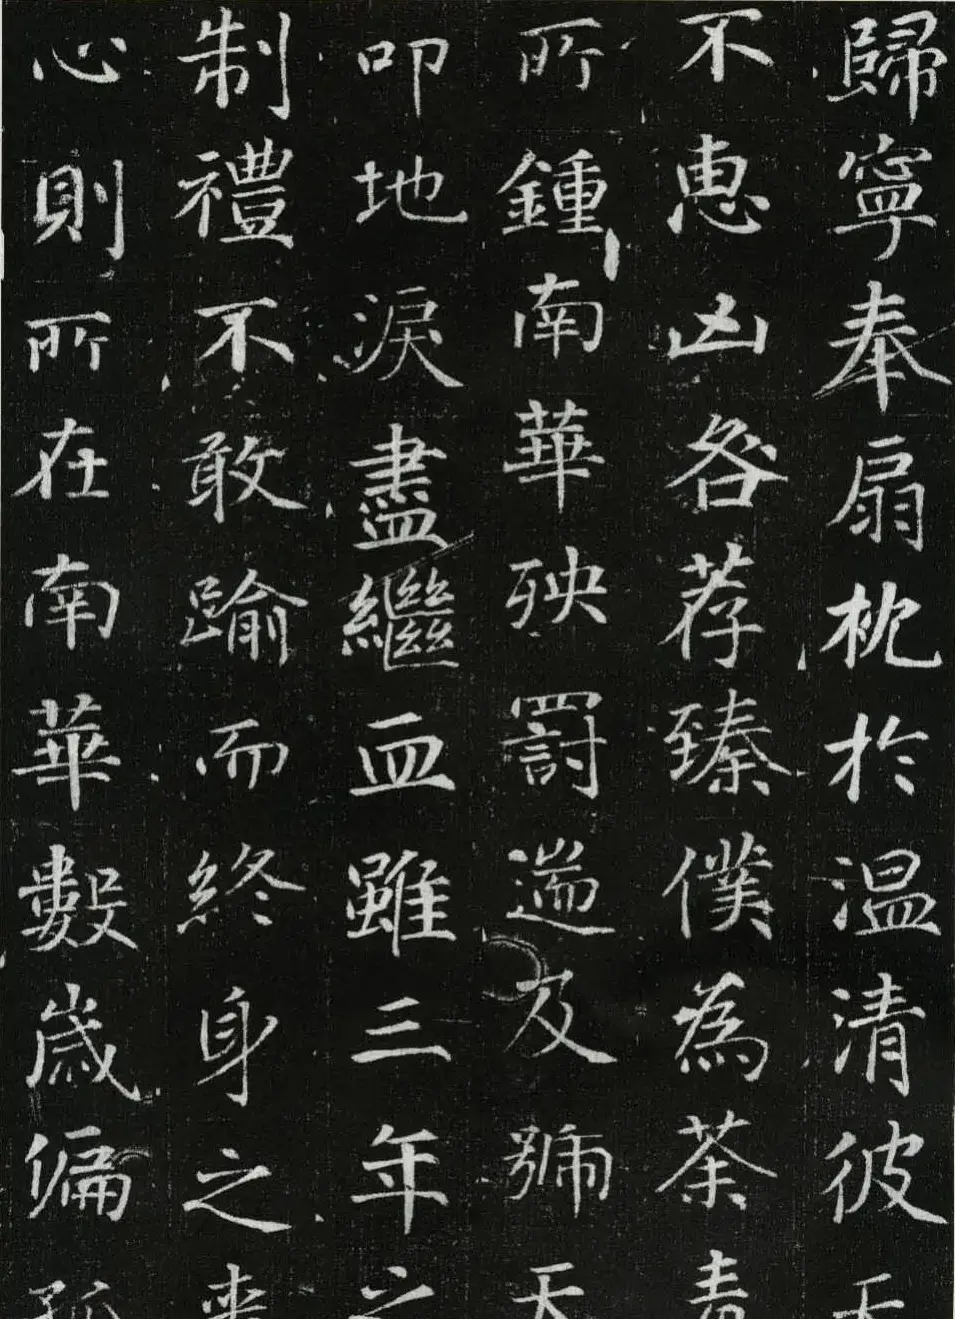 歸寧奉扇枕於温清彼天
不惠凶咎荐臻僕為荼毒
所鍾南華殃罰遄及號天
叩地淚盡繼血雖三年之
制禮不敢踰而終身之喪
心則所在南華數歳偏孤